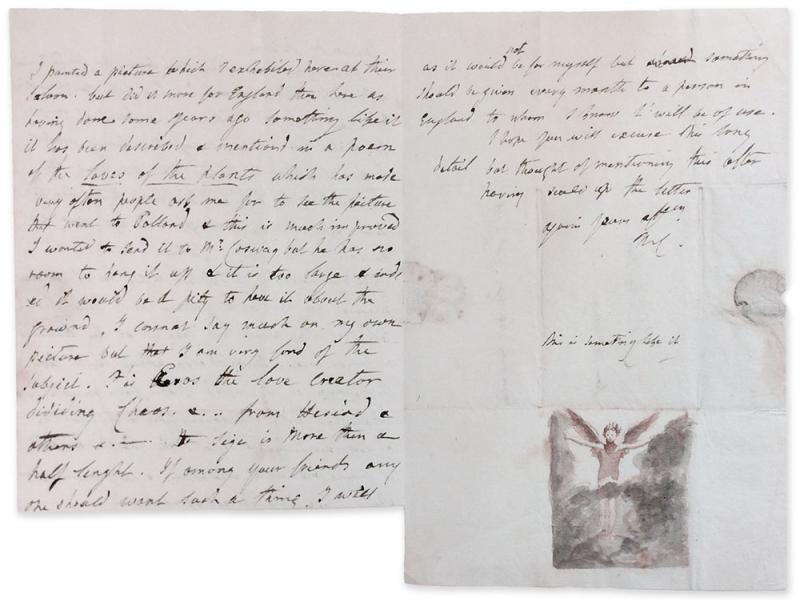 I painted a picture which I exhibited here at their
Saloon. but did it more for England then here as
having done some years ago something like it
it has been described & mentioned in a poem
of the Loves of the plants which has made
very often people ask me for to see the picture
that went to Polland & this is much improved
I wanted to send it to Mr. Cosway but he has no
room to hang it up & it is too large & inde
ed it would be a pity to have it about the
ground, I cannot say much on my own
picture but that I am very fond of the
subject. It is Eros the love creator
dividing Chaos. &.. from Hesiod &
others &. The size is more then a
half lenght. If among your friends any
one should want such a thing, I will
as it would not be for myself but something
should be given every month to a person in
England to whom I know it will be of use.
I hope you will excuse this long
detail but thought of mentioning this after
having seald up the letter
again yours affly
M C.
this is something like it